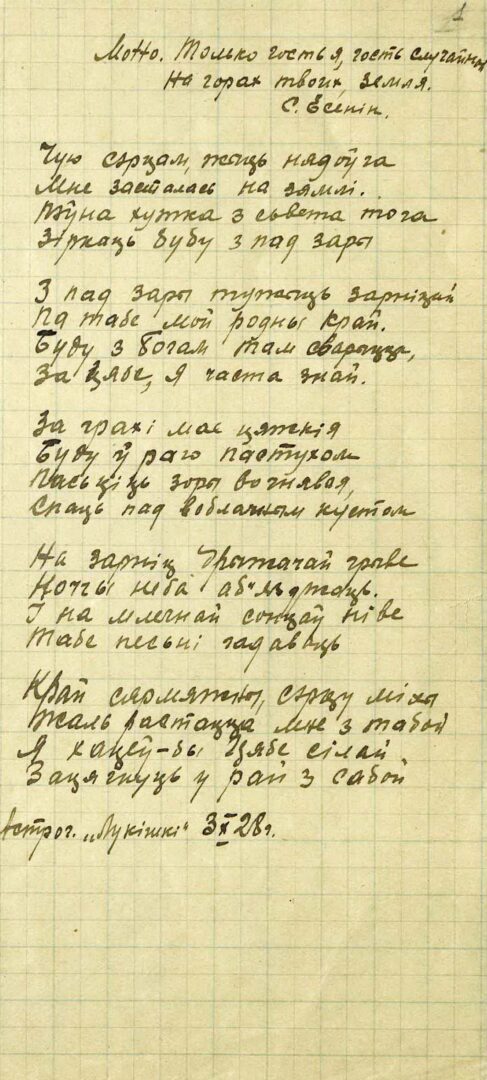 1
Мотто. Только гость я, гость случайный
На горах твоих, земля.
С. Есенін.
Чую сэрцам, жыць нядоўга
Мне засталась на зямлі.
Пэўна хутка з сьвета тога
Зіркаць буду з пад зары
З пад зары тужыць зарніцай
Па табе мой родны край.
Буду з Богам там сварыцца,
За Цябе, я часта знай.
За грахі мае цяжкія
Буду ў раю пастухом
Пасьціць зоры вогнявыя,
Спаць пад воблачным кустом
На зарніц грывe
Ноччы неба аб'яжджаць.
І на млечнай сонцаў ніве
Табе песьні гадаваць
Край сярмяжны, сэрцу мілы
Жаль растацца мне з табой
Я хацеў-бы Цябе сілай
Зацягнуць у рай з сабой
Астрог. „Лукішкі" 3 X 28 г.